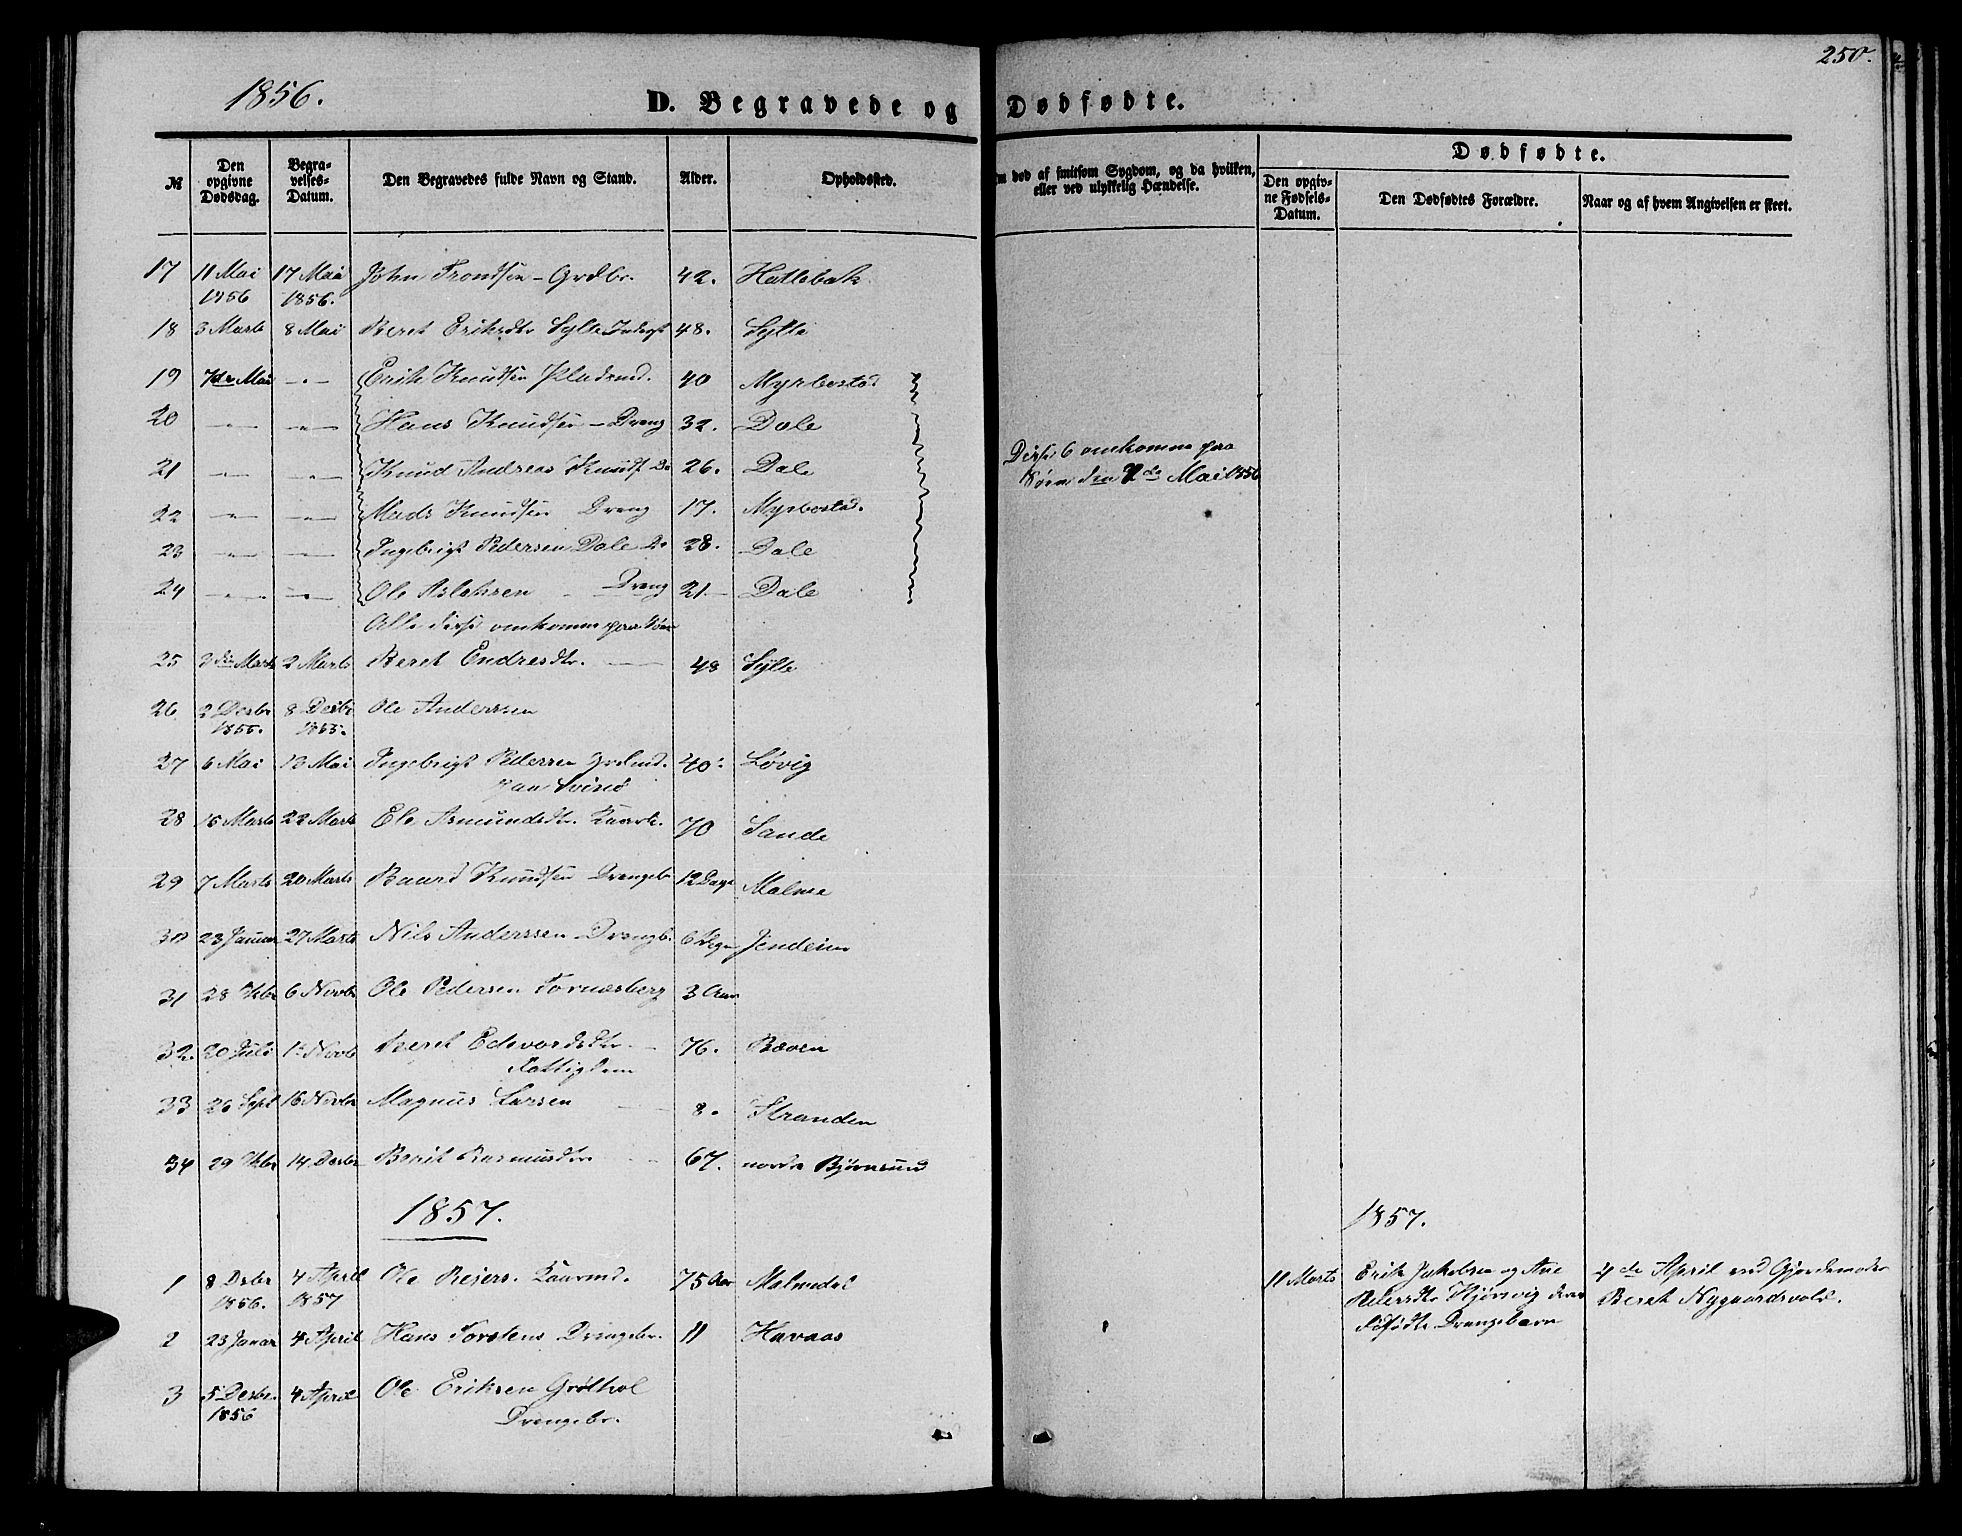 250.
1856.
D. Begravede og Dødfødte.
№ Den opgivne Dødsdag. Begravelses-Datum. Den Begravedes fulde Navn og Stand. Alder. Opholdssted. død af smitsom Sygdom, og da hvilken, eller ved ulykkelig Hændelse. Dødfødte.
Den opgivne Fødsels-Datum. Den Dødfødtes Forældre. Naar og af hvem Angivelsen er skeet.
17 11 Mai 1856 17 Mai 1856. John Trondsen - Grdbr. 42. Hatlebak
18 3 Marts 8 Mai Beret Eriksdtr Sylte 48. Sylte
19 7de Mai -"- Erik Knudsen Pladsmd. 40 Myrbostad
20 -"- -"- Hans Knudsen - Dreng 32. Dale
21 -"- -"- Knud Andreas Knuds Do 26. Dale
Disse 6 omkomne paa
Søen den 7de Mai 1856
22 -"- -"- Mads Knudsen Dreng 17. Myrbostad.
23 -"- -"- Ingebrigt Pedersen Dale Do 28. Dale
24 -"- -"- Ole Aslaksen - Dreng 21 - Dale
Alle disse omkomne paa Søen
25 3die Marts 2 Marts Beret Endresdtr. 48 Sylte
26 2 Desbr 1855. 8 Desbr 1855. Ole Anderssen
27 6 Mai 13 Mai Ingebrigt Pedersen 40. Løvig
28 15 Marts 22 Marts Ele Asmundsdtr. Kaark. 70 Sande
29 7 Marts 20 Marts Baard Knudsen Drengeb. 12 Dage Malme
30 23 Januar 27 Marts Nils Anderssen Drengb. 6 Uger Jendem
31 28 Okbr 6 Novbr Ole Pedersen Tornæsberg 3 Aar
32. 20 Juli 1ste Novb Beret Edvardsdtr. 76. Bæven
Fattiglem
33 26 Sept 16 Novbr Magnus Larsen 8. Stranden
34 29 Okbr 14 Desbr Berit Rasmusdtr 67. nordre Bjørnsund
1857.
1857.
1 8 Desbr 1856. 4 April 1857 Ole Reiers. Kaarmd. 75 Aar Malmedal
11 Marts Erik Jakobsen og Ane
Pedersdtr Hjørsvig deres
dødfødte Drengebarn
4de April ved Gjordemoder
Beret Nygaardsvold.
2 23 Januar 4 April Hans Torstens Drengebr. 11 Havnaas
3 5 Desbr. 1856 4 April Ole Eriksen Grøthol
Drengebr.